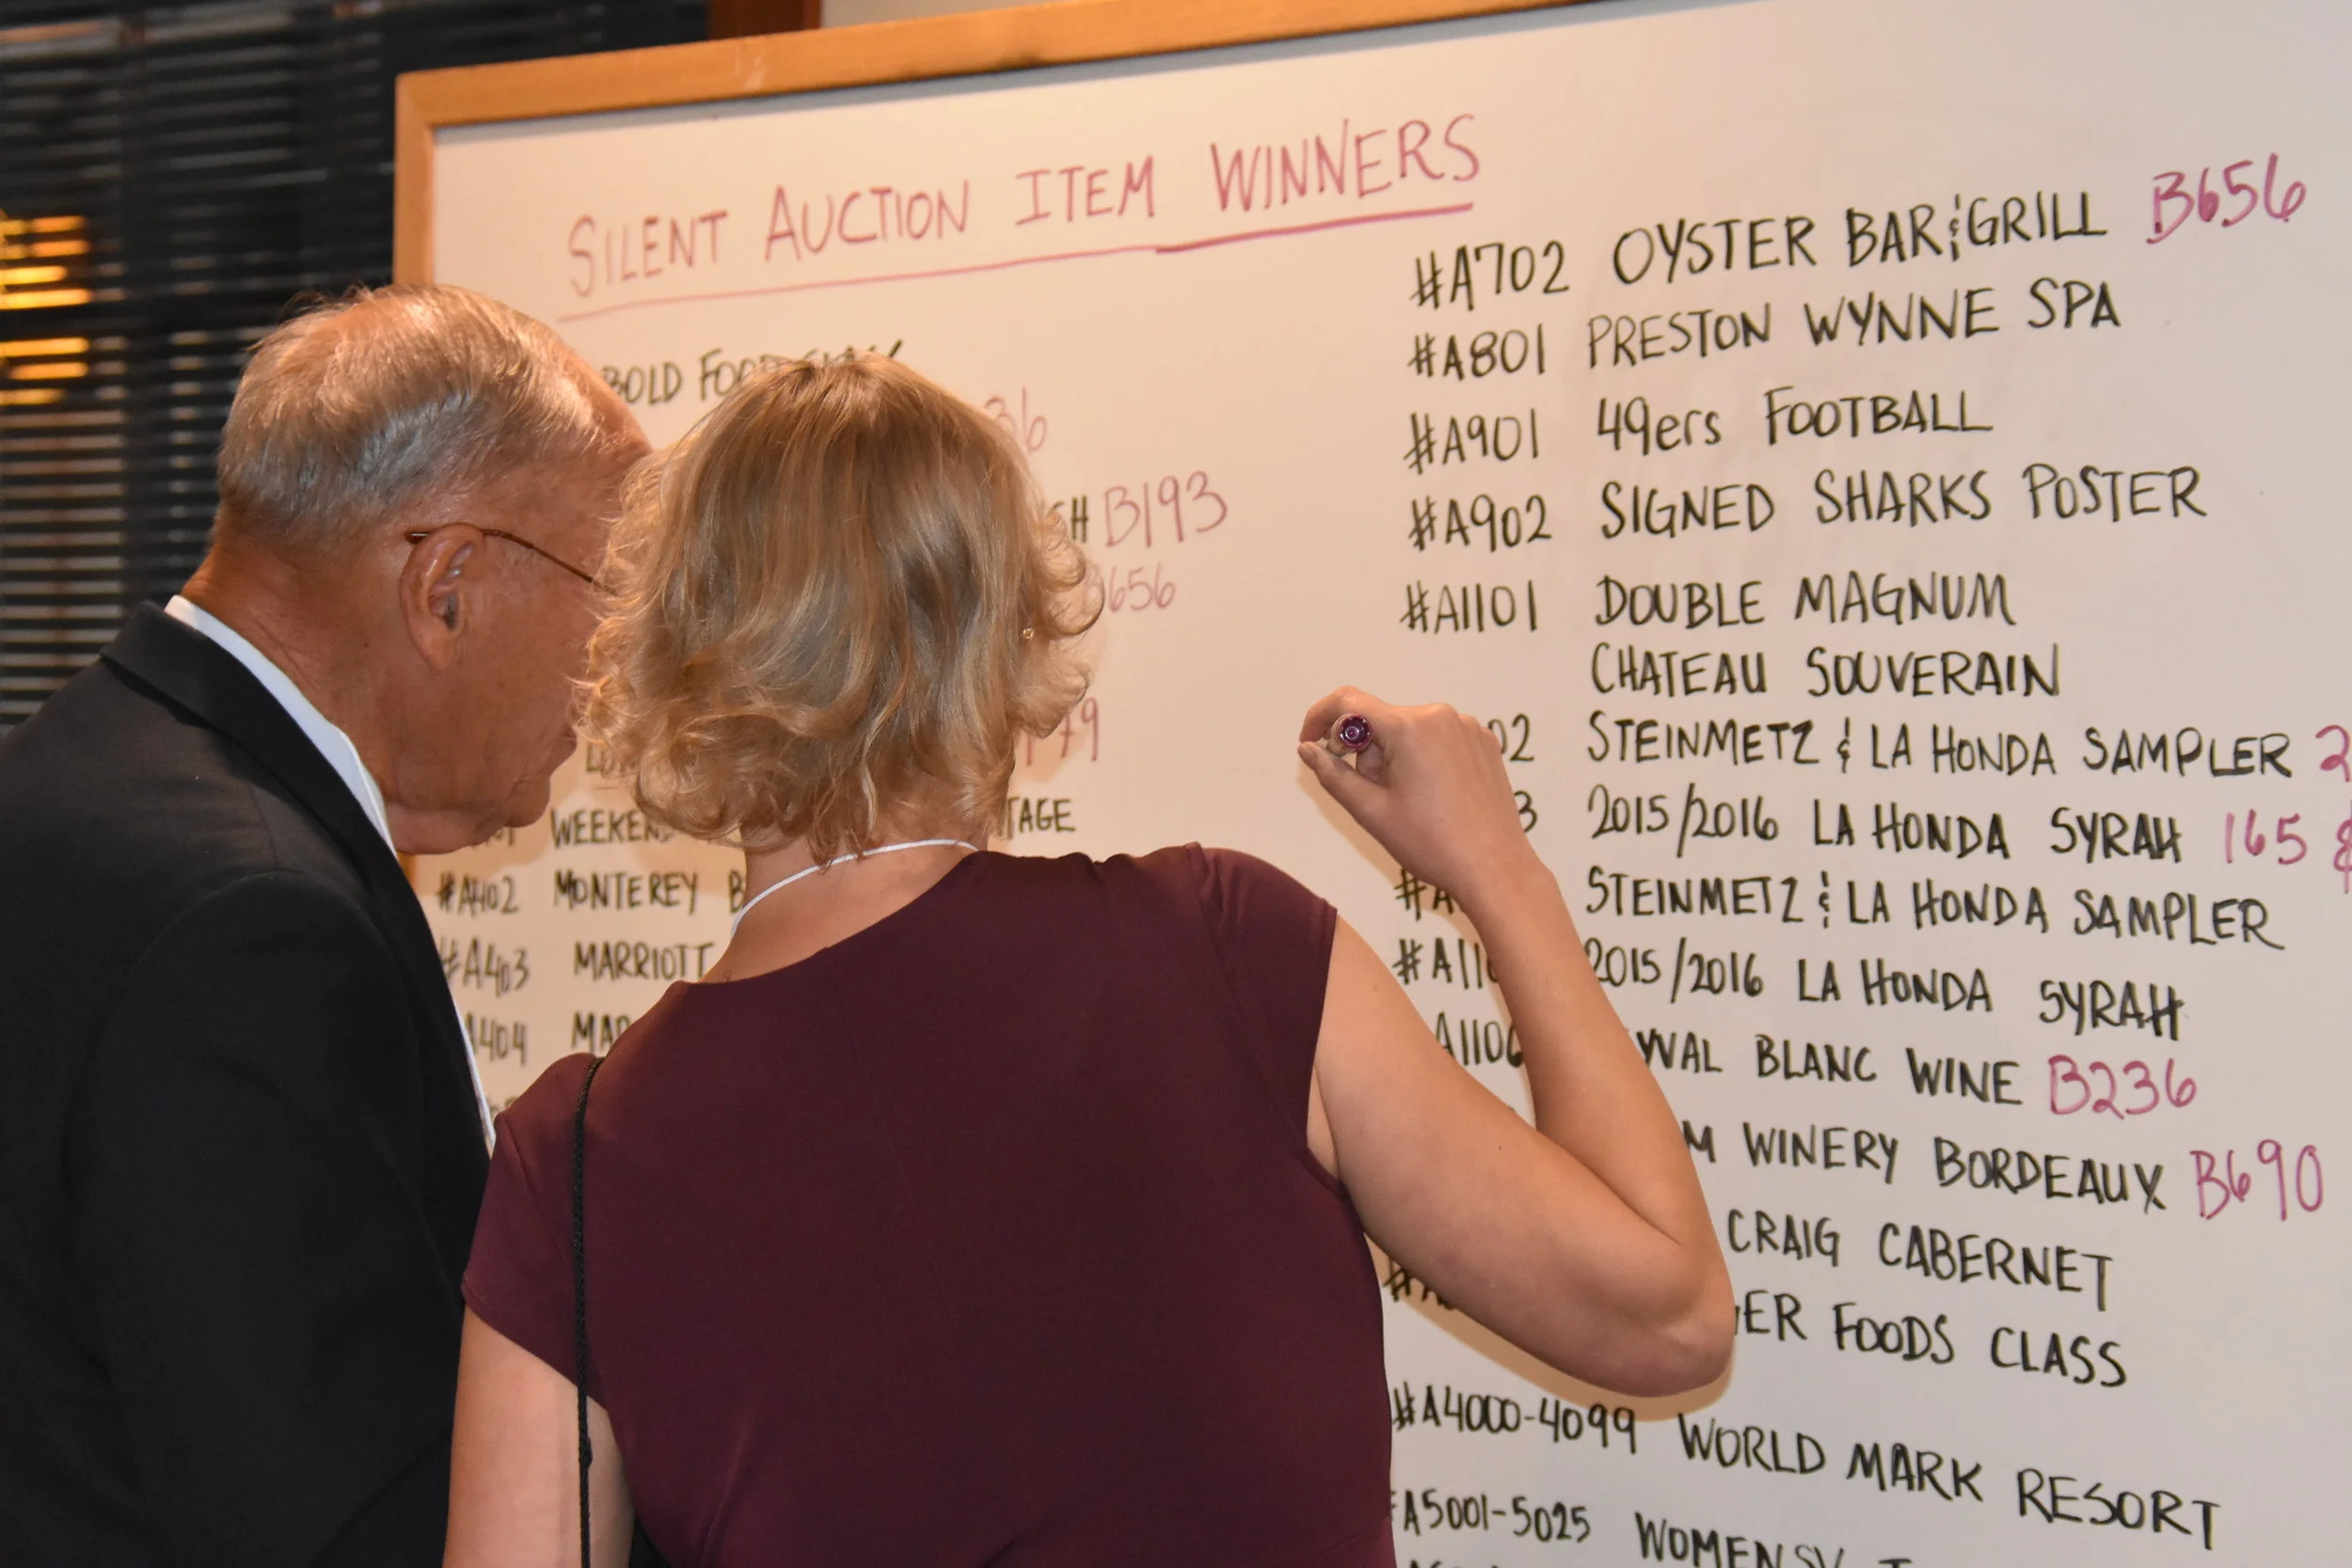 SILENT AUCTION ITEM WINNERS
BOLD FOOD
36
B193
B656
79
WEEKEND
#A402 MONTEREY
#A403 MARRIOTT
A404
#A702 OYSTER BAR & GRILL B656
#A801 PRESTON WYNNE SPA
#A901 49ers FOOTBALL
#A902 SIGNED SHARKS POSTER
#A1101 DOUBLE MAGNUM
CHATEAU SOUVERAIN
02 STEINMETZ & LA HONDA SAMPLER 2
3 2015/2016 LA HONDA SYRAH 165 &
STEINMETZ & LA HONDA SAMPLER
#A110 2015/2016 LA HONDA SYRAH
A1106 YVAL BLANC WINE B236
M WINERY BORDEAUX B690
CRAIG CABERNET
ER FOODS CLASS
#A4000-4099 WORLD MARK RESORT
#A5001-5025 WOMENSV